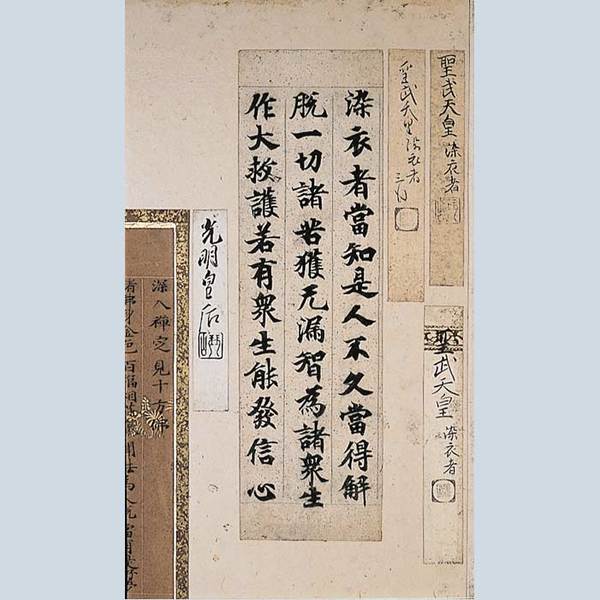 聖武天皇 染衣者
聖武天皇 染衣者
聖武天皇染衣者 三行
染衣者當知是人不久當得解
脱一切諸苦獲无漏智為諸衆生
作大救護若有衆生能發信心
光明皇后
深入禪定見十方佛
身金色百福相